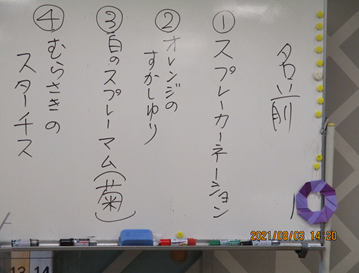 名前
①スプレーカーネーション
②オレンジの
すかしゆり
③白のスプレーマム(菊)
④むらさきの
スターチス
2021/08/03 14:20
13 14